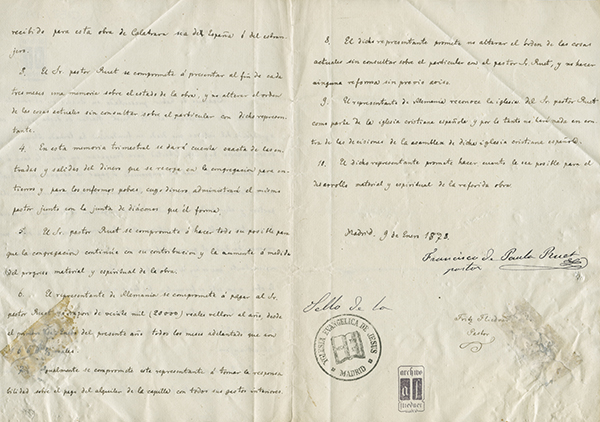 recibido para esta obra de Calatrava sea de España ó del estran-
jero.
3. El Sr. pastor Ruet se compromete á presentar al fin de cada
tres meses una memoria sobre el estado de la obra, y no alterar el orden
de las cosas actuales sin consultar sobre el particular con dicho represen-
tante.
4. En esta memoria trimestral se dará cuenta exacta de las en-
tradas y salidas del dinero que se recoga en la congregacion para en-
tierros y para los enfermos pobres, cuyo dinero administrará el mismo
pastor junto con la junta de diáconos que él forma.
5. El Sr. pastor Ruet se compromete á hacer todo su posible para
que la congregacion continúe en su contribucion y la aumente á medida
del progreso material y espiritual de la obra.
6. El representante de Alemania se compromete á pagar al Sr.
pastor Ruet á razon de veinte mil (20000) reales vellon al año desde
el primero de del presente año todos los meses adelantado que son
reales
Igualmente se compromete este representante á tomar la responsa-
bilidad sobre el pago del alquiler de la capilla con todos sus gastos interiores.
8. El dicho representante promete no alterar el orden de las cosas
actuales sin consultar sobre el particular con el pastor Sr. Ruet, y no hacer
ninguna reforma sin previo aviso.
9. El representante de Alemania reconoce la iglesia del Sr. pastor Ruet
como parte de la iglesia cristiana española y por lo tanto no hará nada en con-
tra de las decisiones de la asamblea de dicha iglesia cristiana española.
10. El dicho representante promete hacer cuanto le sea posible para el
desarrollo material y espiritual de la referida obra.
Madrid, 9 de Enero 1873.
Francisco de Paula Ruet
pastor
Sello de la
YGLESIA EVANGELICA DE JESUS
MADRID
Fritz Fliedner
Pastor
archivo